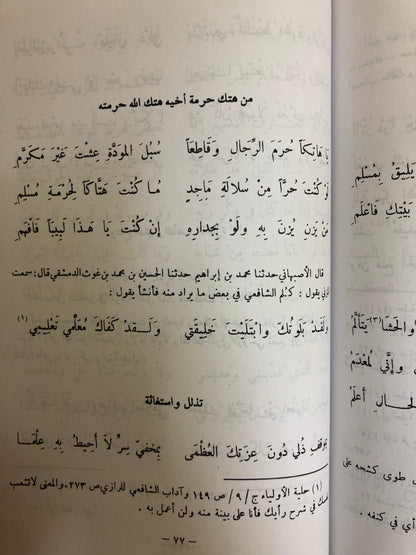 من هتك حرمة أخيه هتك الله حرمته
يَا هَاتِكَاً حُرَمَ الرِّجَالِ وَقَاطِعَاً سُبُلَ المَوَدَّةِ عِشْتَ غَيْرَ مُكَرَّمِ
لَوْ كُنْتَ حُرَّاً مِنْ سُلَالَةِ مَاجِدٍ مَا كُنْتَ هَتَّاكَاً لِحُرْمَةِ مُسْلِمِ
مَنْ يَزْنِ يُزْنَ بِهِ وَلَوْ بِجِدارِهِ إِنْ كُنْتَ يَا هَذَا لَبِيبَاً فَافْهَمِ
قال الأصبهاني حدثنا محمد بن إبراهيم حدثنا الحسين بن محمد بن غوث الدمشقي قال: سمعت
يقول : كلم الشافعي في بعض ما يراد منه فأنشأ يقول :
وَلَقَدْ بَلَوْتُكَ وَابْتَلَيْتَ خَلِيقَتِي وَلَقَدْ كَفَاكَ مُعَلِّمِي تَعْلِيمِي (١)
تذلل واستغاثة
بِمَوْقِفِ ذُلِّي دُونَ عِزَّتِكَ العُظْمَى بِمَخْفِيِّ سِرٍّ لاَ أُحِيطُ بِهِ عِلْمَا
(١) حلية الأولياء ج / ٩ / ص ١٤٩ وآداب الشافعي للرازي ص ٢٧٣. والمعنى لا تتعب
نفسك في شرح رأيك فأنا على بينة منه ولن أعمل به .
— ٧٧ —
يَلِيقُ بِمُسْلِمِ
بَيْتِكَ فَاعْلَمِ
وَالحَشَا (٣) يَتَأَلَّمُ
وَإِنِّي لَمُعْدَمُ
أَعْلَمُ
طوى كشحه على
أي في كنفه .